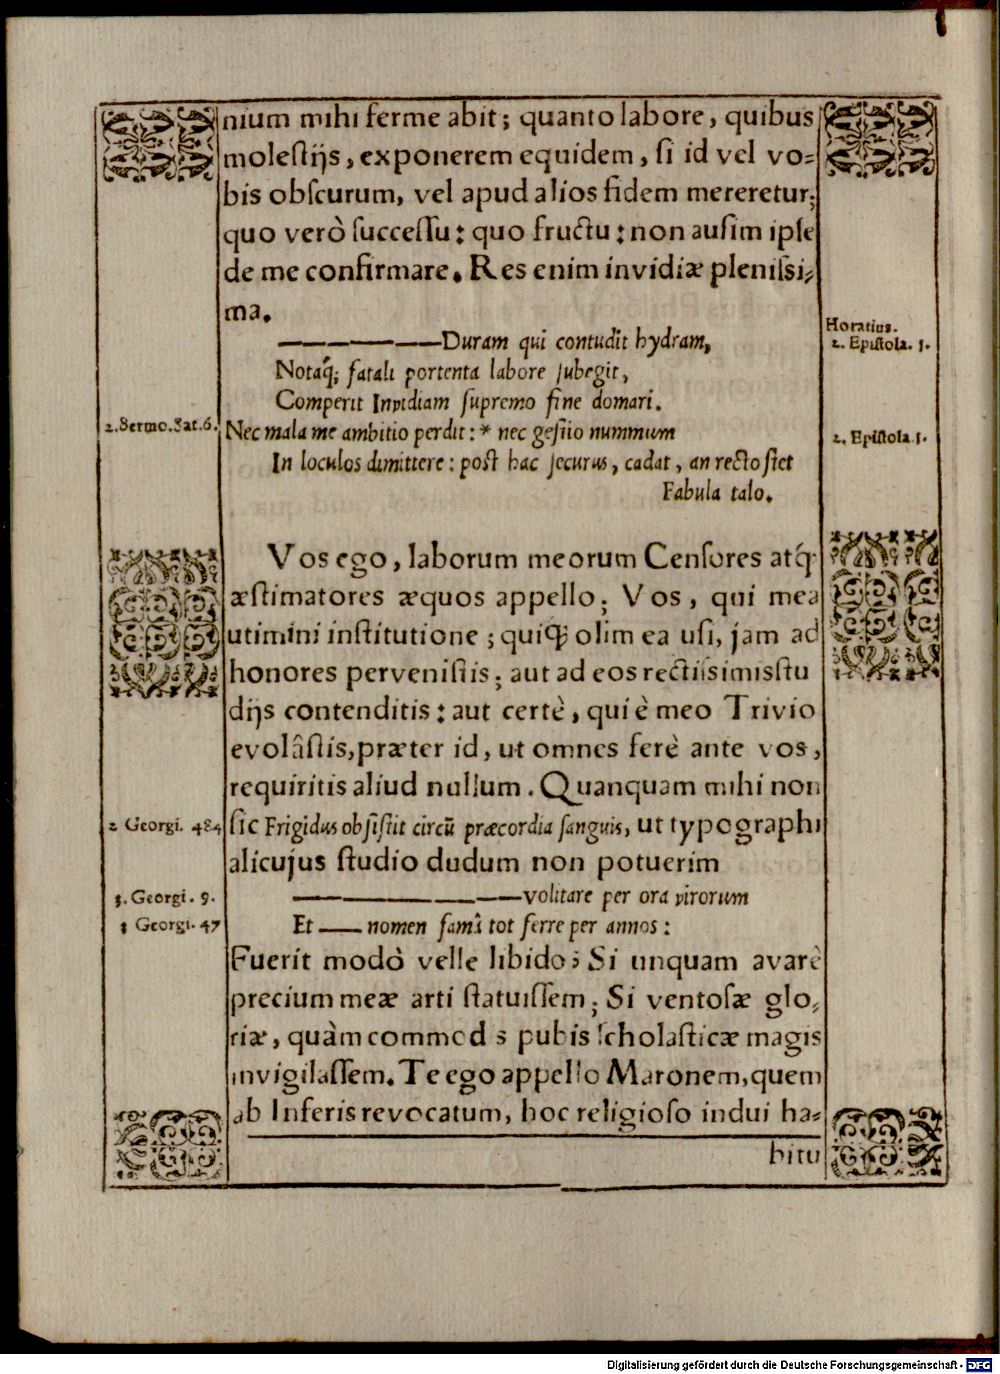 nium mihi ferme abit; quanto labore, quibus
moleſtijs, exponerem equidem, ſi id vel vo-
bis obſcurum, vel apud alios fidem mereretur;
quo verò ſucceſſu: quo fructu: non auſim ipſe
de me confirmare. Res enim invidiæ pleniſsi-
ma.
——————Duram qui contudit hydram,
Horatius.
2. Epiſtola. 1.
Notaq́; fatali portenta labore ſubegit,
Comperit Invidiam ſupremo fine domari.
2. Sermo. Sat. 6.
Nec mala me ambitio perdit: * nec geſtio nummum
2. Epiſtola. 1.
In loculos dimittere: poſt hac ſecurus, cadat, an recto ſtet
Fabula talo.
Vos ego, laborum meorum Cenſores atq́;
æſtimatores æquos appello; Vos, qui mea
utimini inſtitutione; quiq́; olim ea uſi, jam ad
honores perveniſtis; aut ad eos rectiſsimis ſtu
dijs contenditis: aut certè, qui è meo Trivio
evolâſtis, præter id, ut omnes ferè ante vos,
requiritis aliud nullum. Quanquam mihi non
2 Georgi. 484
ſic Frigidus obſiſtit circū præcordia ſanguis, ut typographi
alicujus ſtudio dudum non potuerim
3. Georgi. 9.
——————volitare per ora virorum
3 Georgi. 47
Et —— nomen famâ tot ferre per annos:
Fuerit modò velle libido; Si unquam avarè
precium meæ arti ſtatuiſſem; Si ventoſæ glo-
riæ, quàm commod s pubis ſcholaſticæ magis
invigilaſſem. Te ego appello Maronem, quem
ab Inferis revocatum, hoc religioſo indui ha-
bitu
Digitalisierung gefördert durch die Deutsche Forschungsgemeinschaft - DFG